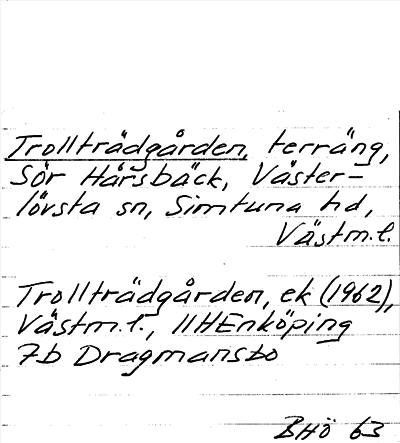 Trollträdgården, terräng,
Sör Hårsbäck, Väster-
lövsta sn, Simtuna hd,
Västm.l.
Trollträdgården, ek (1962),
Västm.l., 11HEnköping
7b Dragmansbo
BHö 63